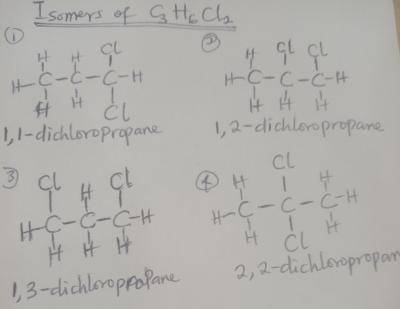 Isomers of C3H6Cl2
① H H Cl
H-C-C-C-H
H H Cl
1,1-dichloropropane
② H Cl Cl
H-C-C-C-H
H H H
1,2-dichloropropane
③ Cl H Cl
H-C-C-C-H
H H H
1,3-dichloropropane
④ H Cl H
H-C-C-C-H
H Cl H
2,2-dichloropropan